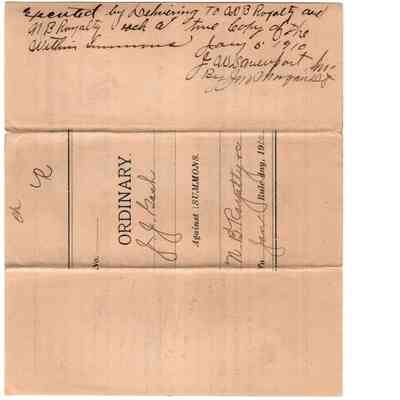 Executed by Delivering to A.B Royalty and
N B Royalty each a true Copy of the
Within summons Jany 5 1910
J A Davenport
By J M Morgan
No.
ORDINARY.
J. J. Cash
Against (SUMMONS.
N. B. Royalty
To Jan Rule day, 191